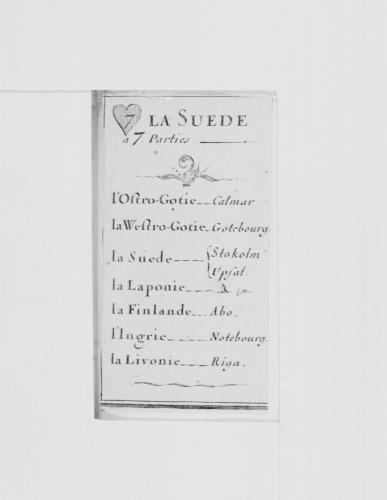 7 LA SUEDE
a 7 Parties.
l'Ostro-Gotie Calmar
la Westro-Gotie Gotebourg
la Suede { Stokolm
Upsal
la Laponie
la Finlande Abo.
l'Ingrie Notebourg.
la Livonie Riga.